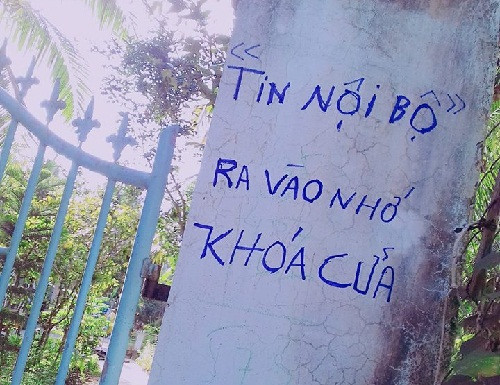 “TIN NỘI BỘ”
RA VÀO NHỚ
KHÓA CỬA